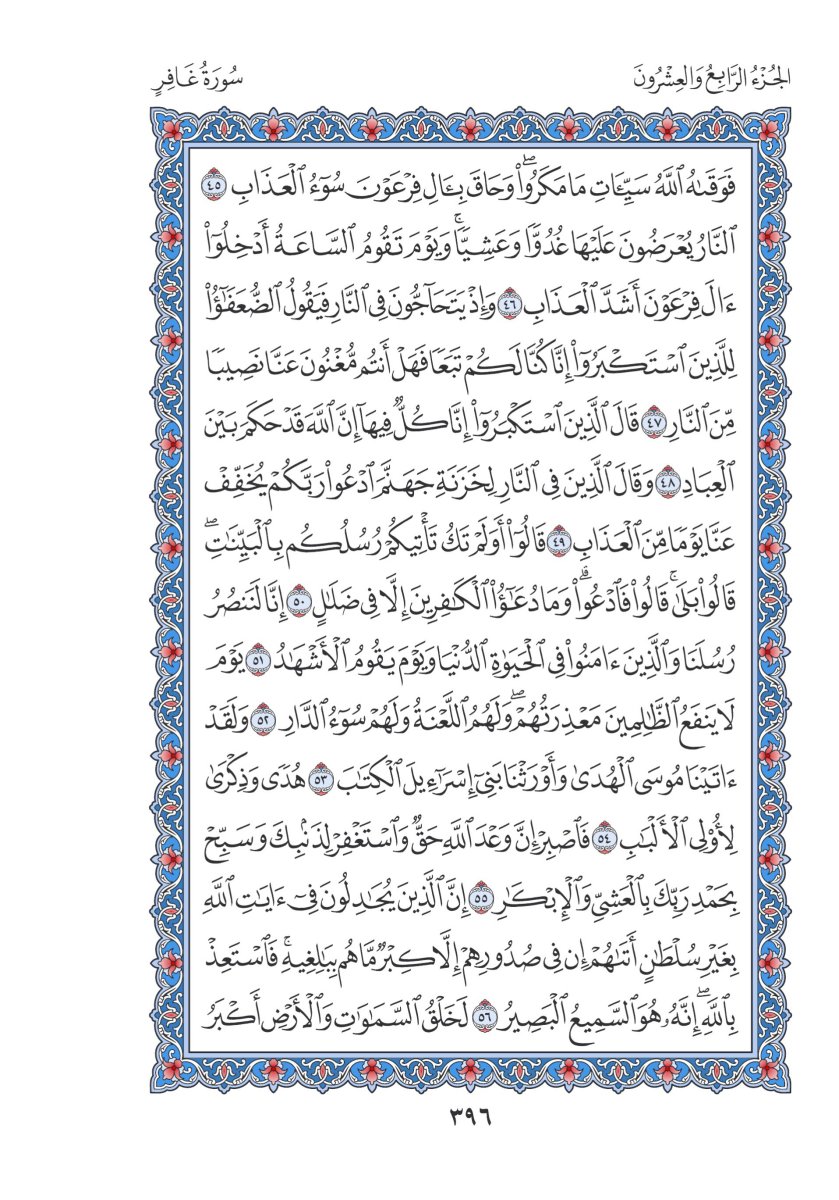 الجُزْءُ الرَّابِعُ وَالعِشْرُونَ
سُورَةُ غَافِرٍ
فَوَقَىٰهُ ٱللَّهُ سَيِّـَٔاتِ مَا مَكَرُوا۟ۖ وَحَاقَ بِـَٔالِ فِرْعَوْنَ سُوٓءُ ٱلْعَذَابِ ٤٥
ٱلنَّارُ يُعْرَضُونَ عَلَيْهَا غُدُوًّا وَعَشِيًّاۚ وَيَوْمَ تَقُومُ ٱلسَّاعَةُ أَدْخِلُوٓا۟
ءَالَ فِرْعَوْنَ أَشَدَّ ٱلْعَذَابِ ٤٦ وَإِذْ يَتَحَآجُّونَ فِى ٱلنَّارِ فَيَقُولُ ٱلضُّعَفَٰٓؤُا۟
لِلَّذِينَ ٱسْتَكْبَرُوٓا۟ إِنَّا كُنَّا لَكُمْ تَبَعًا فَهَلْ أَنتُم مُّغْنُونَ عَنَّا نَصِيبًا
مِّنَ ٱلنَّارِ ٤٧ قَالَ ٱلَّذِينَ ٱسْتَكْبَرُوٓا۟ إِنَّا كُلٌّ فِيهَآ إِنَّ ٱللَّهَ قَدْ حَكَمَ بَيْنَ
ٱلْعِبَادِ ٤٨ وَقَالَ ٱلَّذِينَ فِى ٱلنَّارِ لِخَزَنَةِ جَهَنَّمَ ٱدْعُوا۟ رَبَّكُمْ يُخَفِّفْ
عَنَّا يَوْمًا مِّنَ ٱلْعَذَابِ ٤٩ قَالُوٓا۟ أَوَلَمْ تَكُ تَأْتِيكُمْ رُسُلُكُم بِٱلْبَيِّنَٰتِۖ
قَالُوا۟ بَلَىٰۚ قَالُوا۟ فَٱدْعُوا۟ۗ وَمَا دُعَٰٓؤُا۟ ٱلْكَٰفِرِينَ إِلَّا فِى ضَلَٰلٍ ٥٠ إِنَّا لَنَنصُرُ
رُسُلَنَا وَٱلَّذِينَ ءَامَنُوا۟ فِى ٱلْحَيَوٰةِ ٱلدُّنْيَا وَيَوْمَ يَقُومُ ٱلْأَشْهَٰدُ ٥١ يَوْمَ
لَا يَنفَعُ ٱلظَّٰلِمِينَ مَعْذِرَتُهُمْۖ وَلَهُمُ ٱللَّعْنَةُ وَلَهُمْ سُوٓءُ ٱلدَّارِ ٥٢ وَلَقَدْ
ءَاتَيْنَا مُوسَى ٱلْهُدَىٰ وَأَوْرَثْنَا بَنِىٓ إِسْرَٰٓءِيلَ ٱلْكِتَٰبَ ٥٣ هُدًى وَذِكْرَىٰ
لِأُو۟لِى ٱلْأَلْبَٰبِ ٥٤ فَٱصْبِرْ إِنَّ وَعْدَ ٱللَّهِ حَقٌّ وَٱسْتَغْفِرْ لِذَنۢبِكَ وَسَبِّحْ
بِحَمْدِ رَبِّكَ بِٱلْعَشِىِّ وَٱلْإِبْكَٰرِ ٥٥ إِنَّ ٱلَّذِينَ يُجَٰدِلُونَ فِىٓ ءَايَٰتِ ٱللَّهِ
بِغَيْرِ سُلْطَٰنٍ أَتَىٰهُمْ إِن فِى صُدُورِهِمْ إِلَّا كِبْرٌ مَّا هُم بِبَٰلِغِيهِۚ فَٱسْتَعِذْ
بِٱللَّهِۖ إِنَّهُۥ هُوَ ٱلسَّمِيعُ ٱلْبَصِيرُ ٥٦ لَخَلْقُ ٱلسَّمَٰوَٰتِ وَٱلْأَرْضِ أَكْبَرُ
٣٩٦